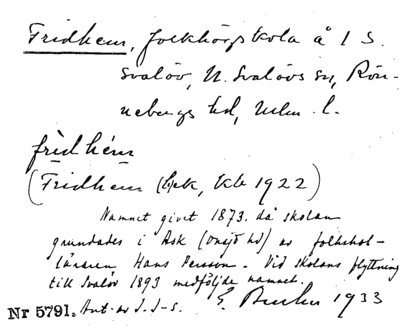 Fridhem, folkhögskola å 1 S.
Svalöv, N. Svalövs sn, Rön-
nebergs hd, Mlm. l.
frìdhém
(Fridhem Gsk, Ktr 1922)
Namnet givet 1873. då skolan
grundades i Ask (Onsjö hd) av folkskol-
läraren Hans Persson. Vid skolans flyttning
till Svalöv 1893 medföljde namnet.
Nr 5791. Ant. av I. I-S. E. 1933